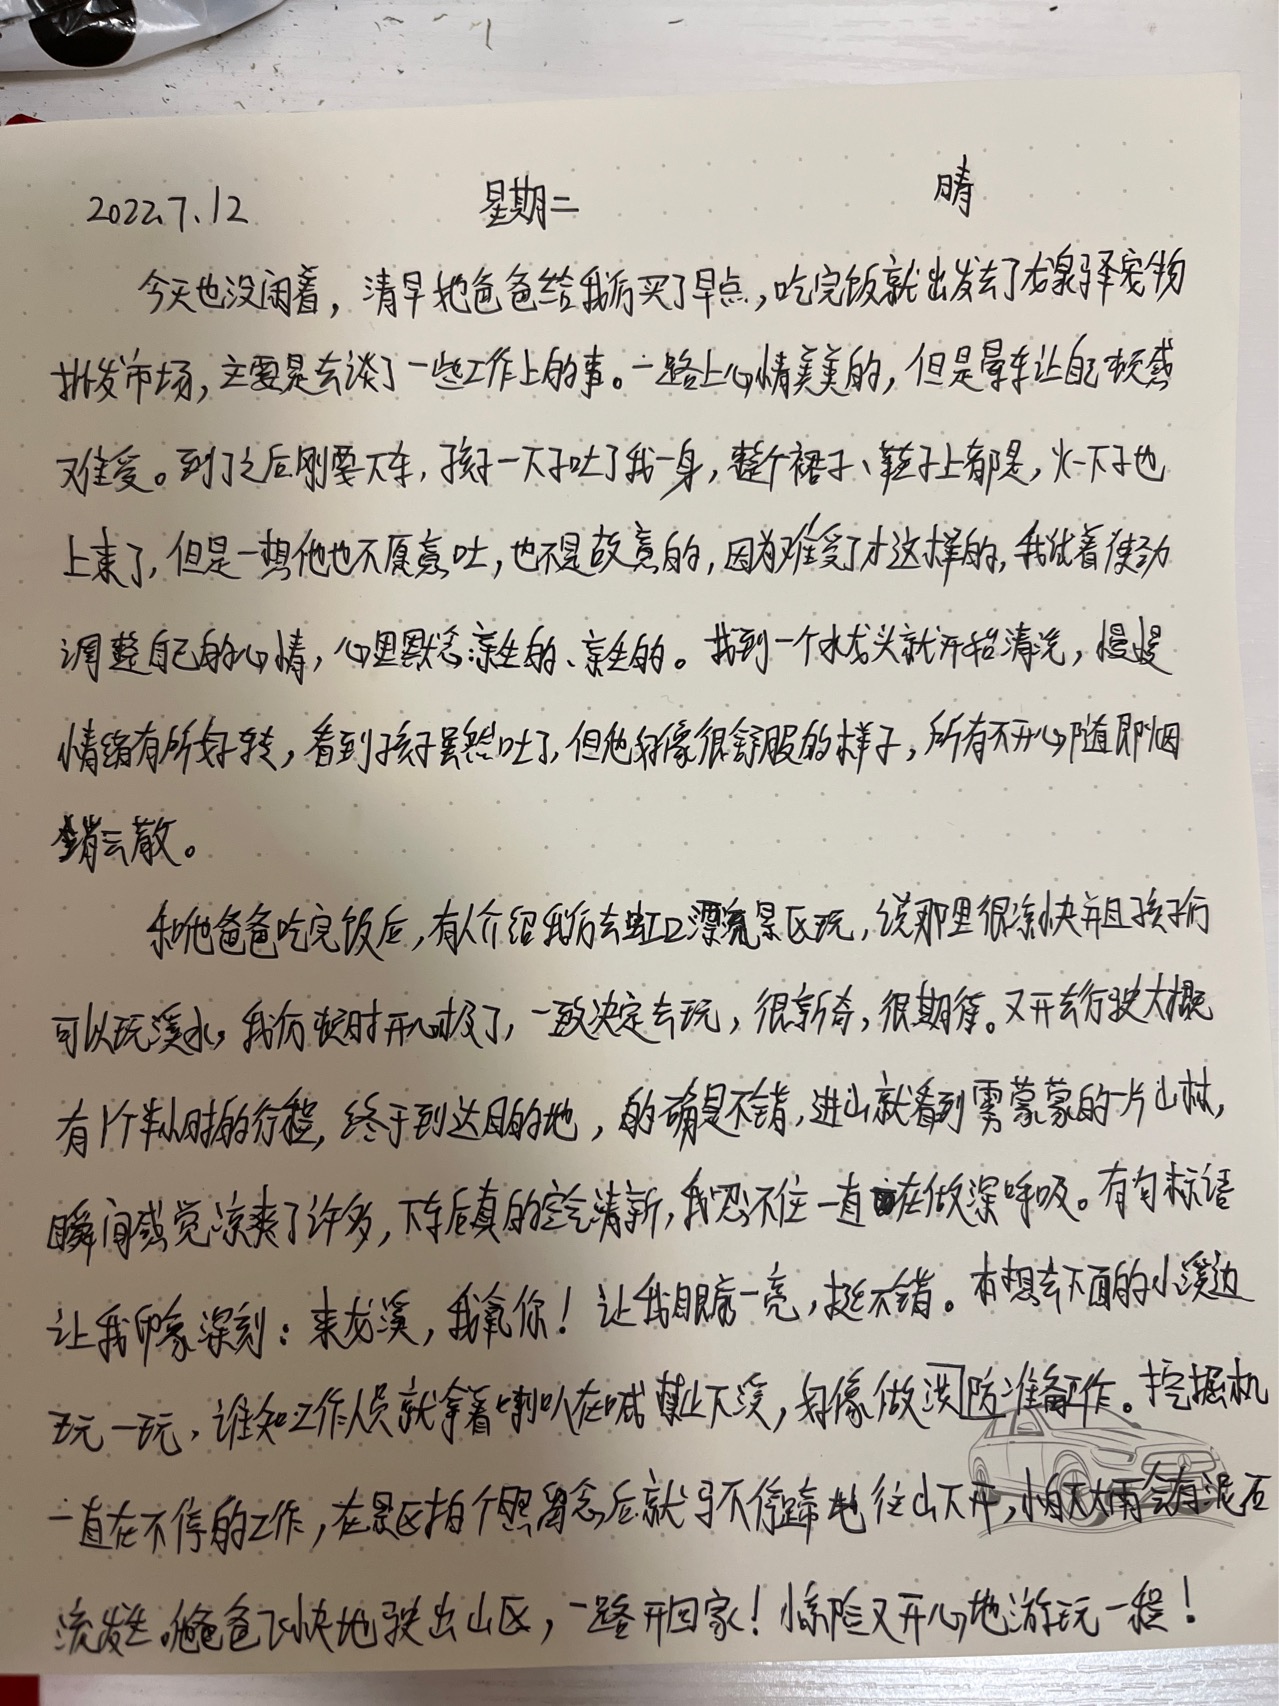 2022.7.12 星期二 晴
今天也没闲着，清早他爸爸给我们买了早点，吃完饭就出发去了龙泉驿宠物
批发市场，主要是去谈了一些工作上的事。一路上心情美美的，但是晕车让自己顿感
难受。到了之后刚要下车，孩子一下子吐了我一身，整个裙子、鞋子上都是，火一下子也
上来了，但是一想他也不愿意吐，也不是故意的，因为难受了才这样的，我试着使劲
调整自己的心情，心里默念亲生的、亲生的。找到一个水龙头就开始清洗，慢慢
情绪有所好转，看到孩子虽然吐了，但他好像很舒服的样子，所有不开心随即烟
销云散。
和他爸爸吃完饭后，有人介绍我们去虹口漂流景区玩，说那里很凉快并且孩子们
可以玩溪水，我们顿时开心极了，一致决定去玩，很新奇，很期待。又开去行驶大概
有1个半小时的行程，终于到达目的地，的确是不错，进山就看到雾蒙蒙的一片山林，
瞬间感觉凉爽了许多，下车后真的空气清新，我忍不住一直在做深呼吸。有句标语
让我印象深刻：来龙溪，我氧你！让我眼前一亮，挺不错。本想去下面的小溪边
玩一玩，谁知工作人员就拿着喇叭在喊禁止下溪，好像做洪防准备工作。挖掘机
一直在不停的工作，在景区拍个照留念后就马不停蹄地往山下开，怕天大雨会有泥石
流发生。他爸爸飞快地驶出山区，一路开回家！惊险又开心地游玩一程！